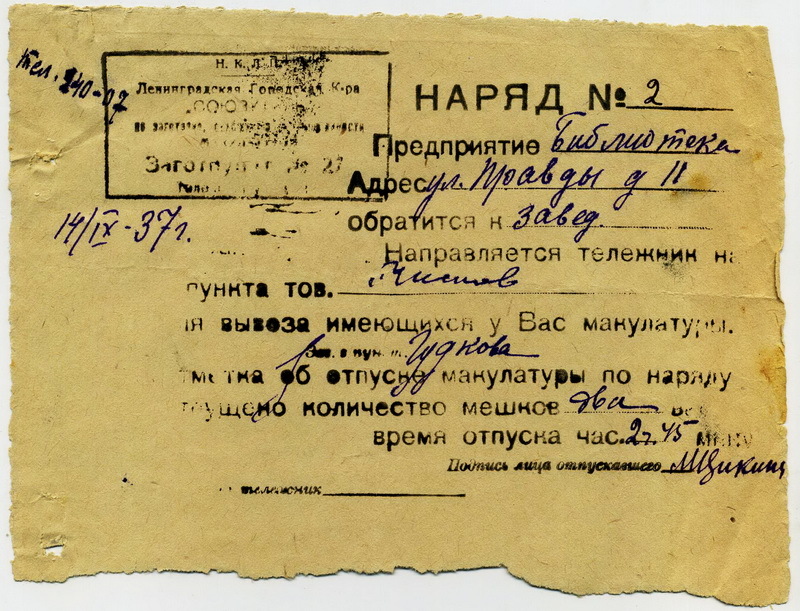 тел. 240-07
Н. К. Л. П.
Ленинградская Городская К-ра
"СОЮЗ
по заготовке,
Заготпункт № 27
НАРЯД № 2
Предприятие Библиотека
Адрес ул. Правды д 11
14/IX-37г.
обратится к завед.
Направляется тележник на
пункта тов.
ля вывоза имеющихся у Вас макулатуры.
Зав. Гудкова
тметка об отпуске макулатуры по наряду
тпущено количество мешков два
время отпуска час. 2ч. 45 мину
Подпись лица отпускавшего
тележник